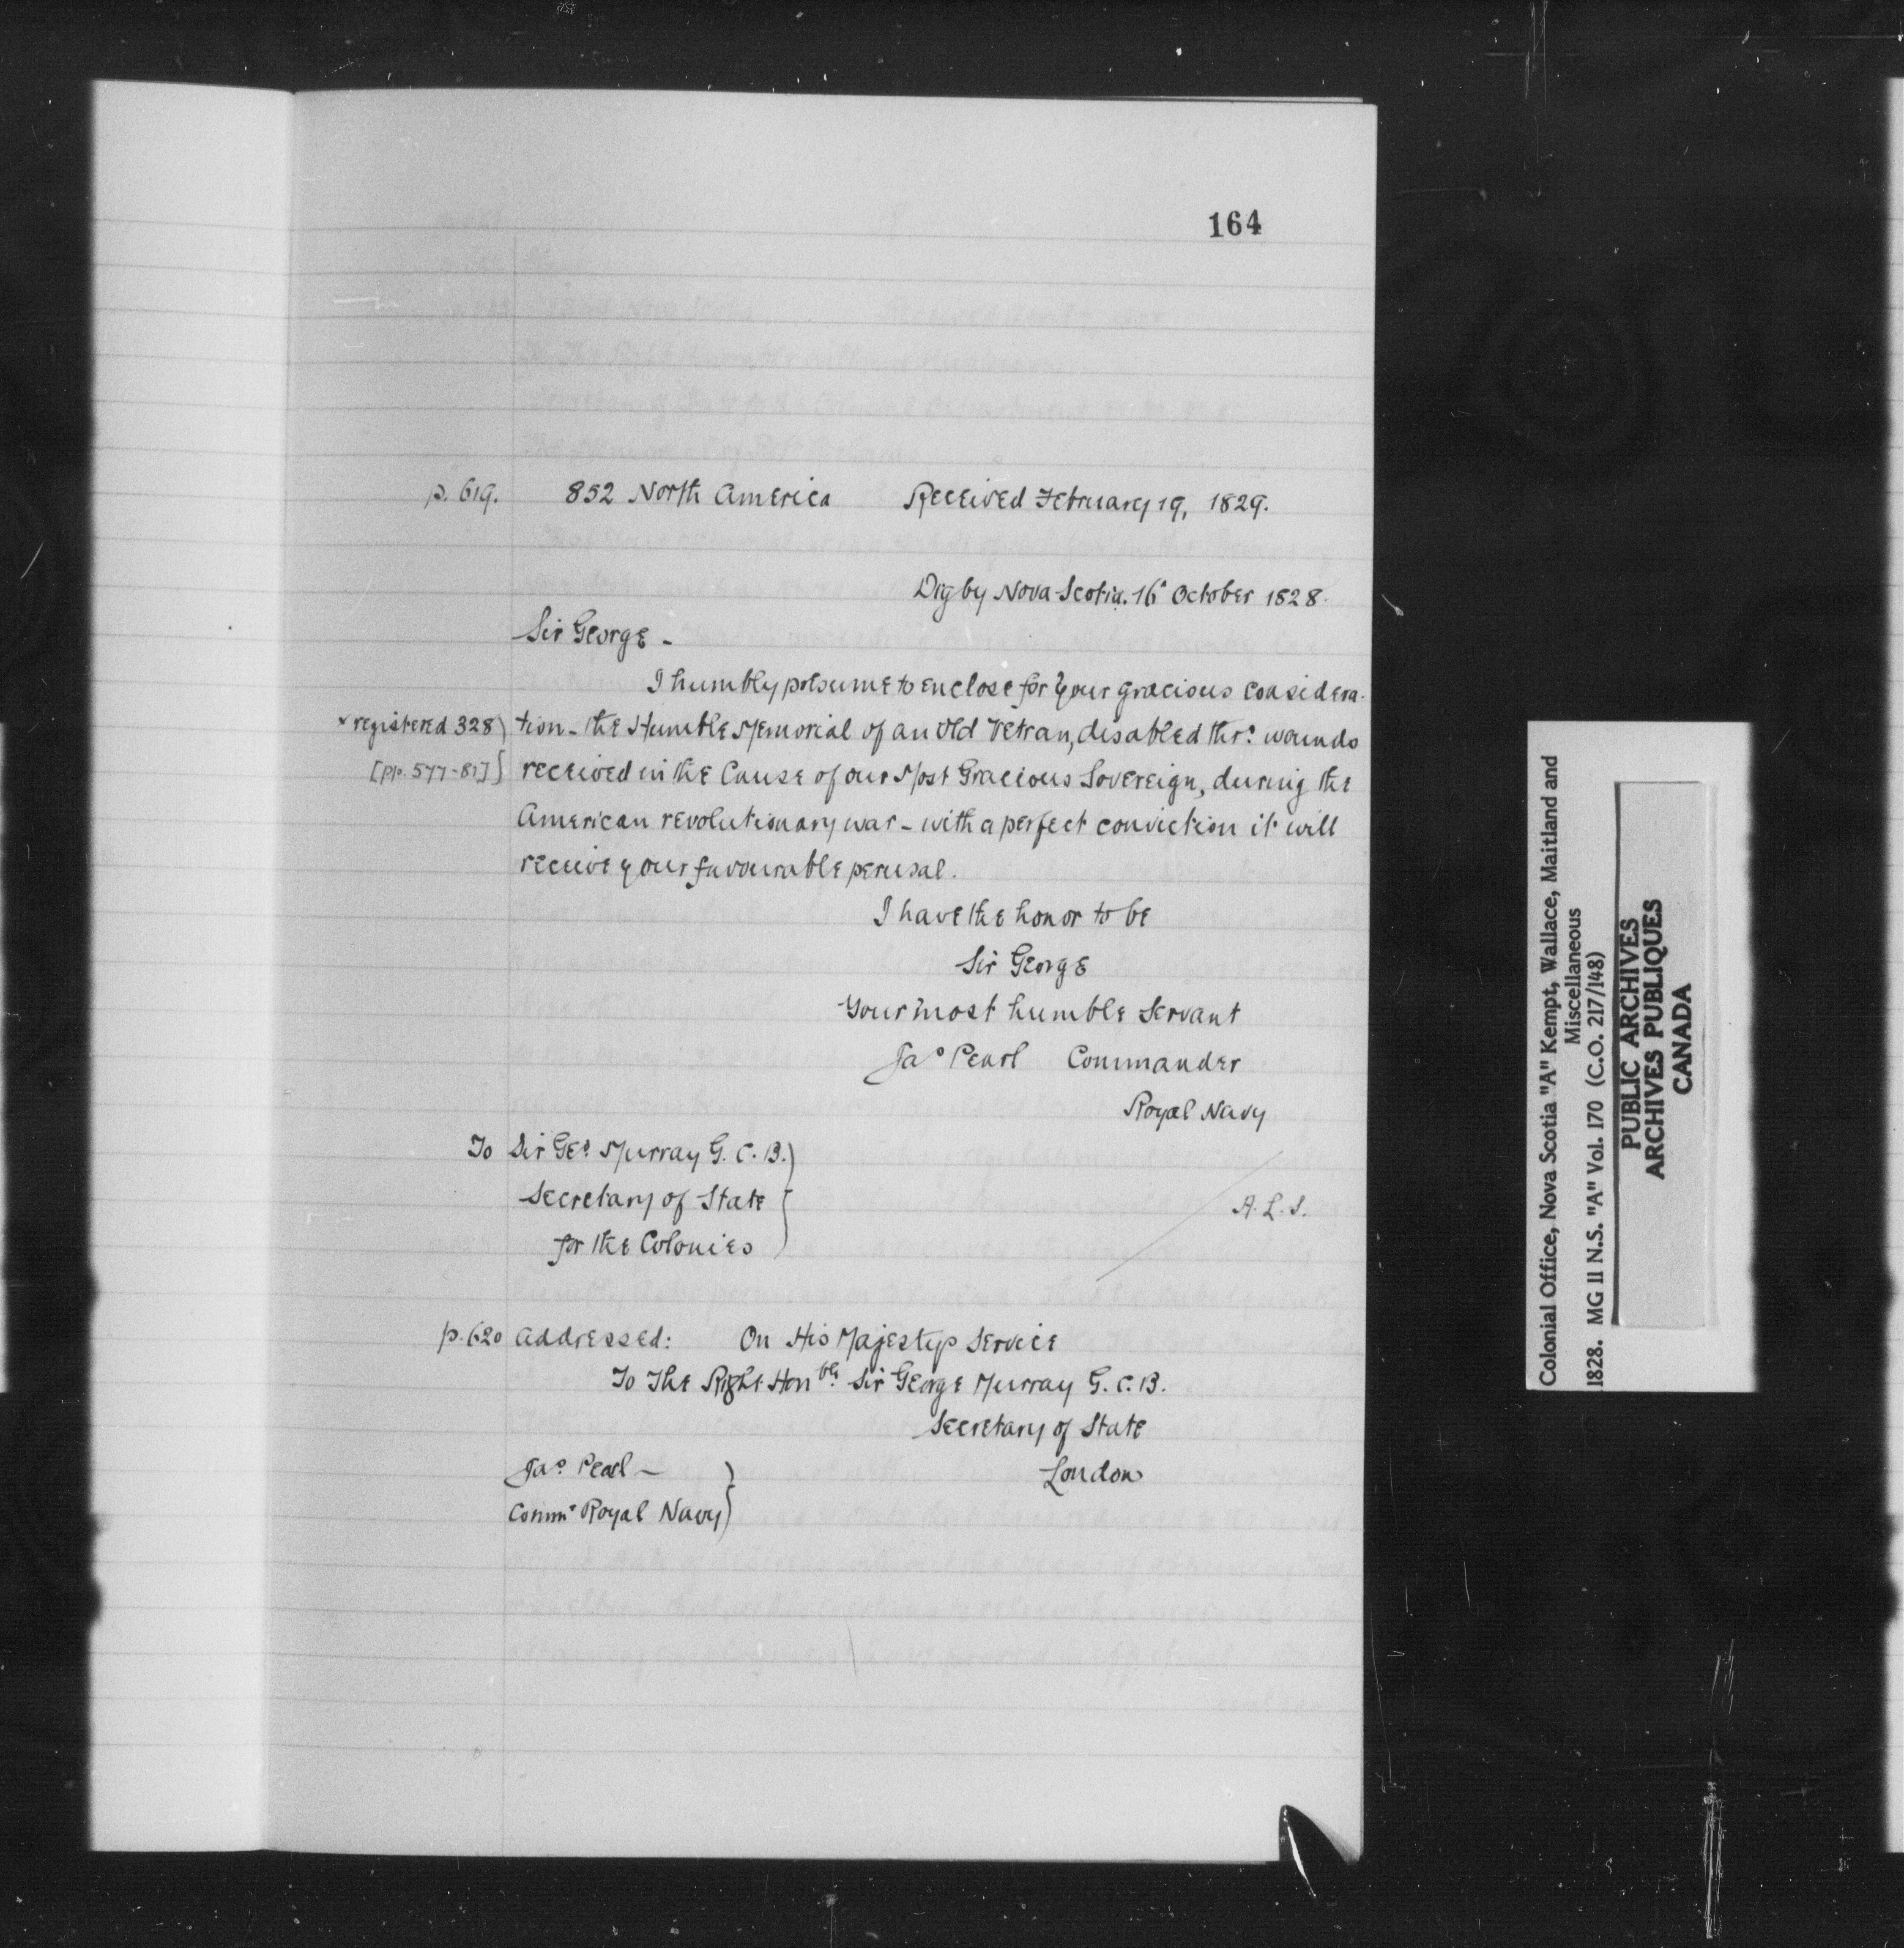 164
p. 619. 852 North America Received February 19, 1829.
Digby Nova-Scotia. 16 October 1828.
Sir George -
I humbly presume to enclose for your gracious considera-
x registered 328 tion - the Humble Memorial of an Old Vetran, disabled thro. wounds
[pp. 577-81] received in the Cause of our Most Gracious Sovereign, during the
American revolutionary war - with a perfect conviction it will
receive your favourable perusal.
I have the honor to be
Sir George
Your most humble Servant
Jas Pearl Commander
Royal Navy
To Sir Geo. Murray G. C. B.
Secretary of State
for the Colonies
A. L. S.
p. 620 Addressed: On His Majestys Service
To The Right Honble Sir George Murray G. C. B.
Secretary of State
Jas. Pearl - London
Commr Royal Navy
Colonial Office, Nova Scotia "A" Kempt, Wallace, Maitland and
Miscellaneous
1828. MG 11 N.S. "A" Vol. 170 (C.O. 217/148)
PUBLIC ARCHIVES
ARCHIVES PUBLIQUES
CANADA